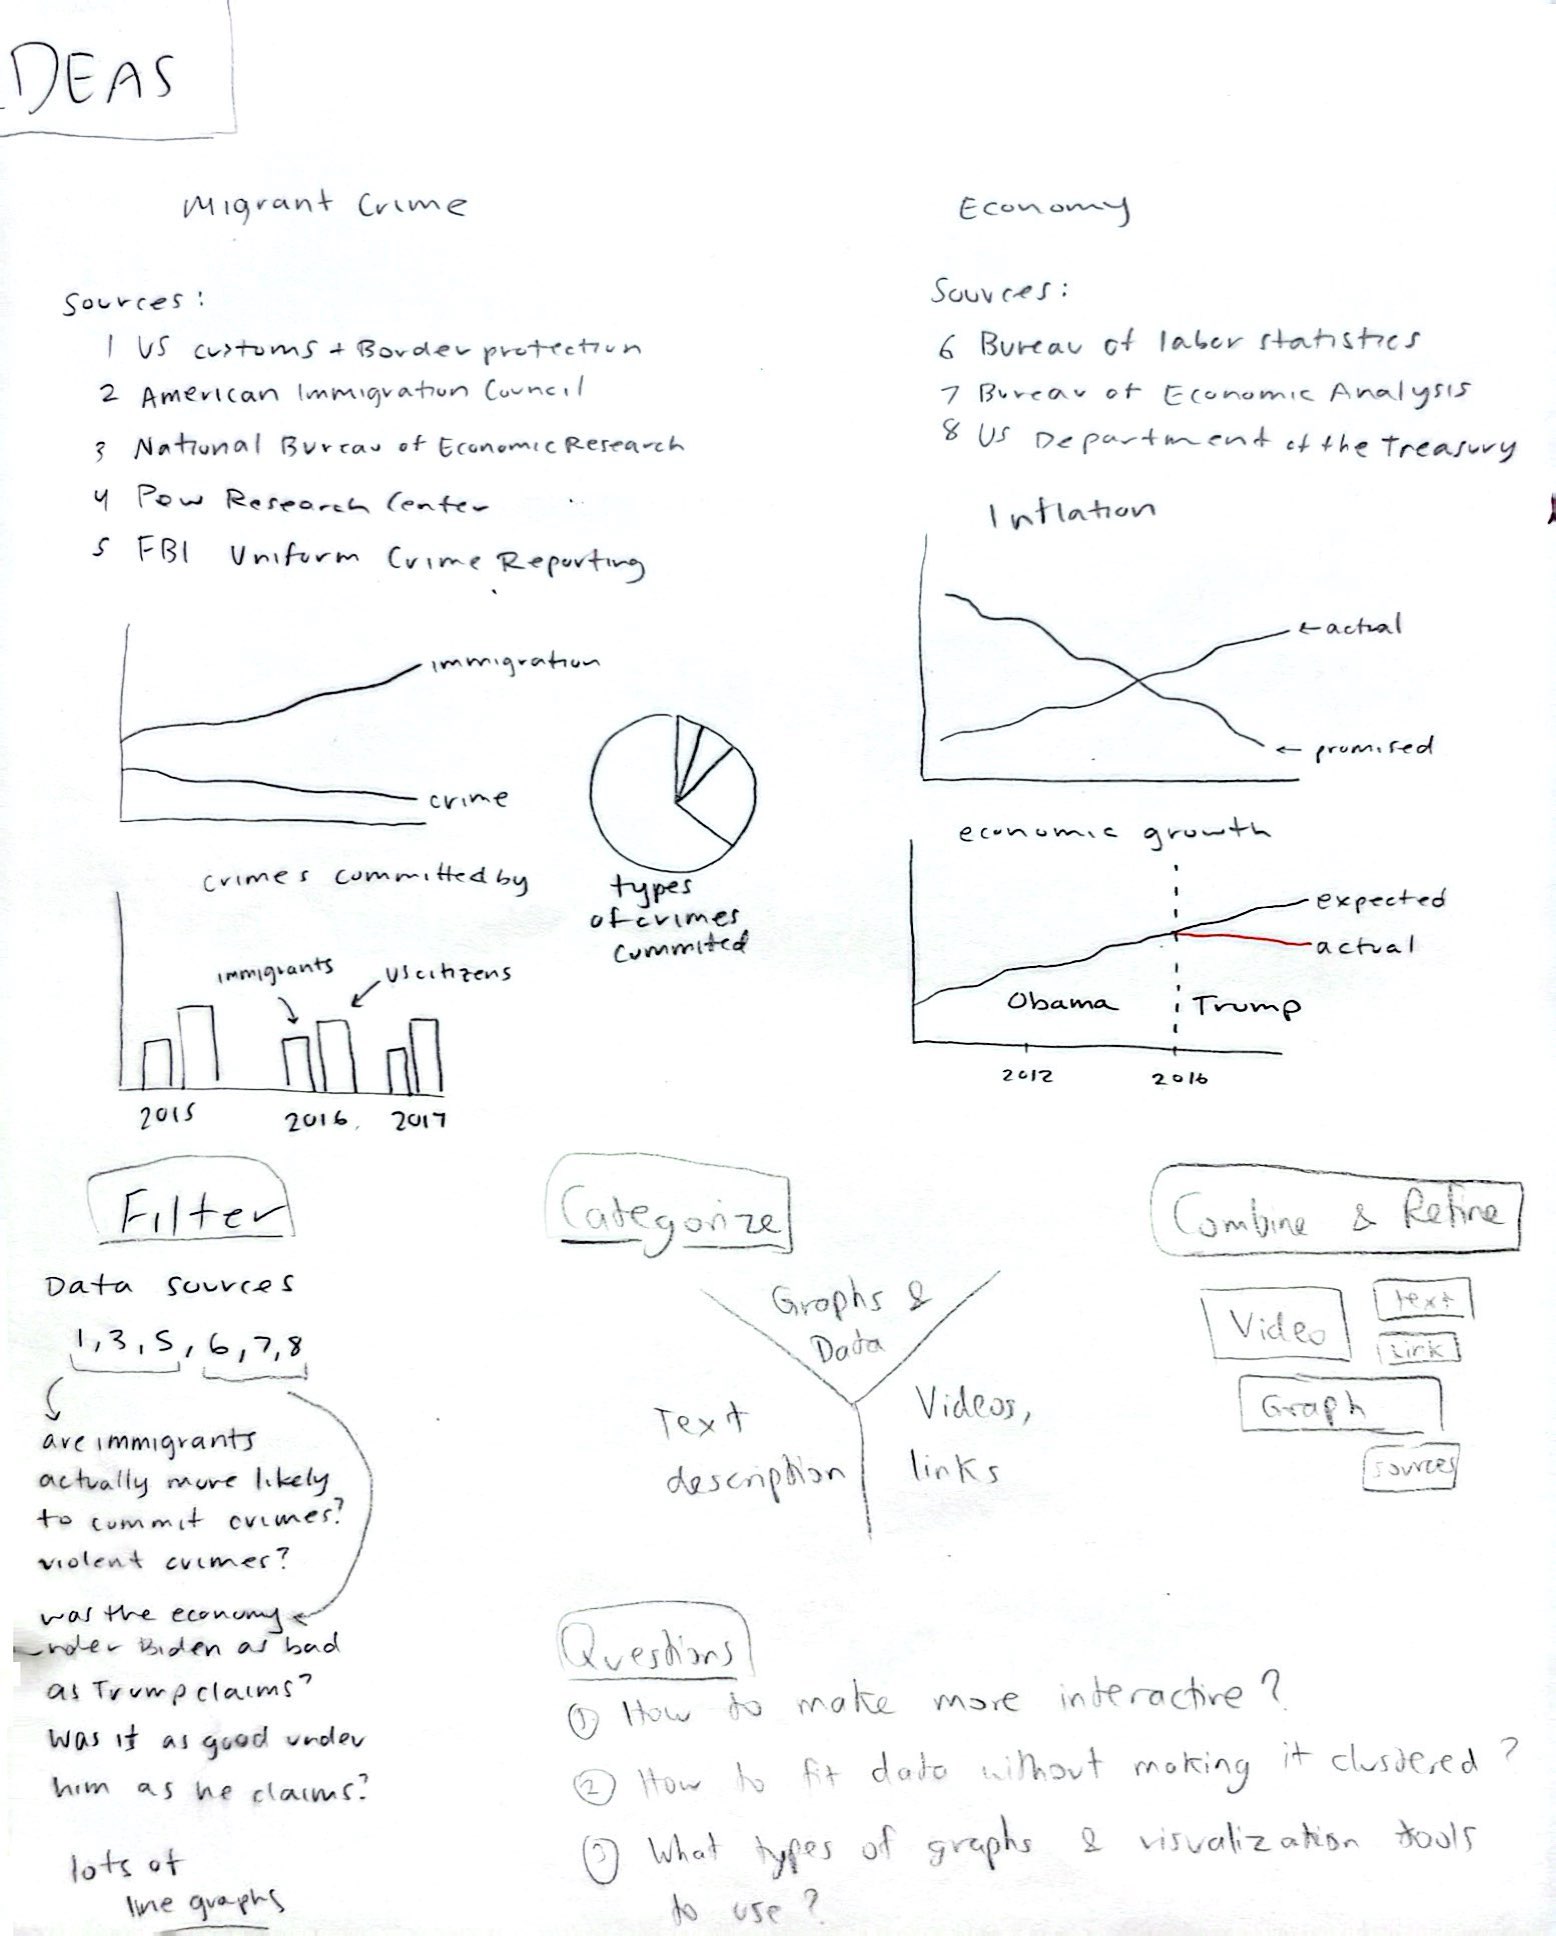 IDEAS
Migrant Crime
Sources:
1 US customs + Border protection
2 American Immigration Council
3 National Bureau of Economic Research
4 Pew Research Center
5 FBI Uniform Crime Reporting
immigration
crime
types
of crimes
commited
crimes committed by
immigrants
US citizens
2015
2016
2017
Economy
Sources:
6 Bureau of labor statistics
7 Bureau of Economic Analysis
8 US Department of the Treasury
Inflation
actual
promised
economic growth
expected
actual
Obama
Trump
2012
2016
Filter
Data sources
1, 3, 5, 6, 7, 8
are immigrants
actually more likely
to commit crimes?
violent crimes?
was the economy
under Biden as bad
as Trump claims?
Was it as good under
him as he claims?
lots of
line graphs
Categorize
Graphs &
Data
Text
description
Videos,
links
Combine & Refine
Video
text
Link
Graph
sources
Questions
① How to make more interactive?
② How to fit data without making it clustered?
③ What types of graphs & visualization tools
to use?